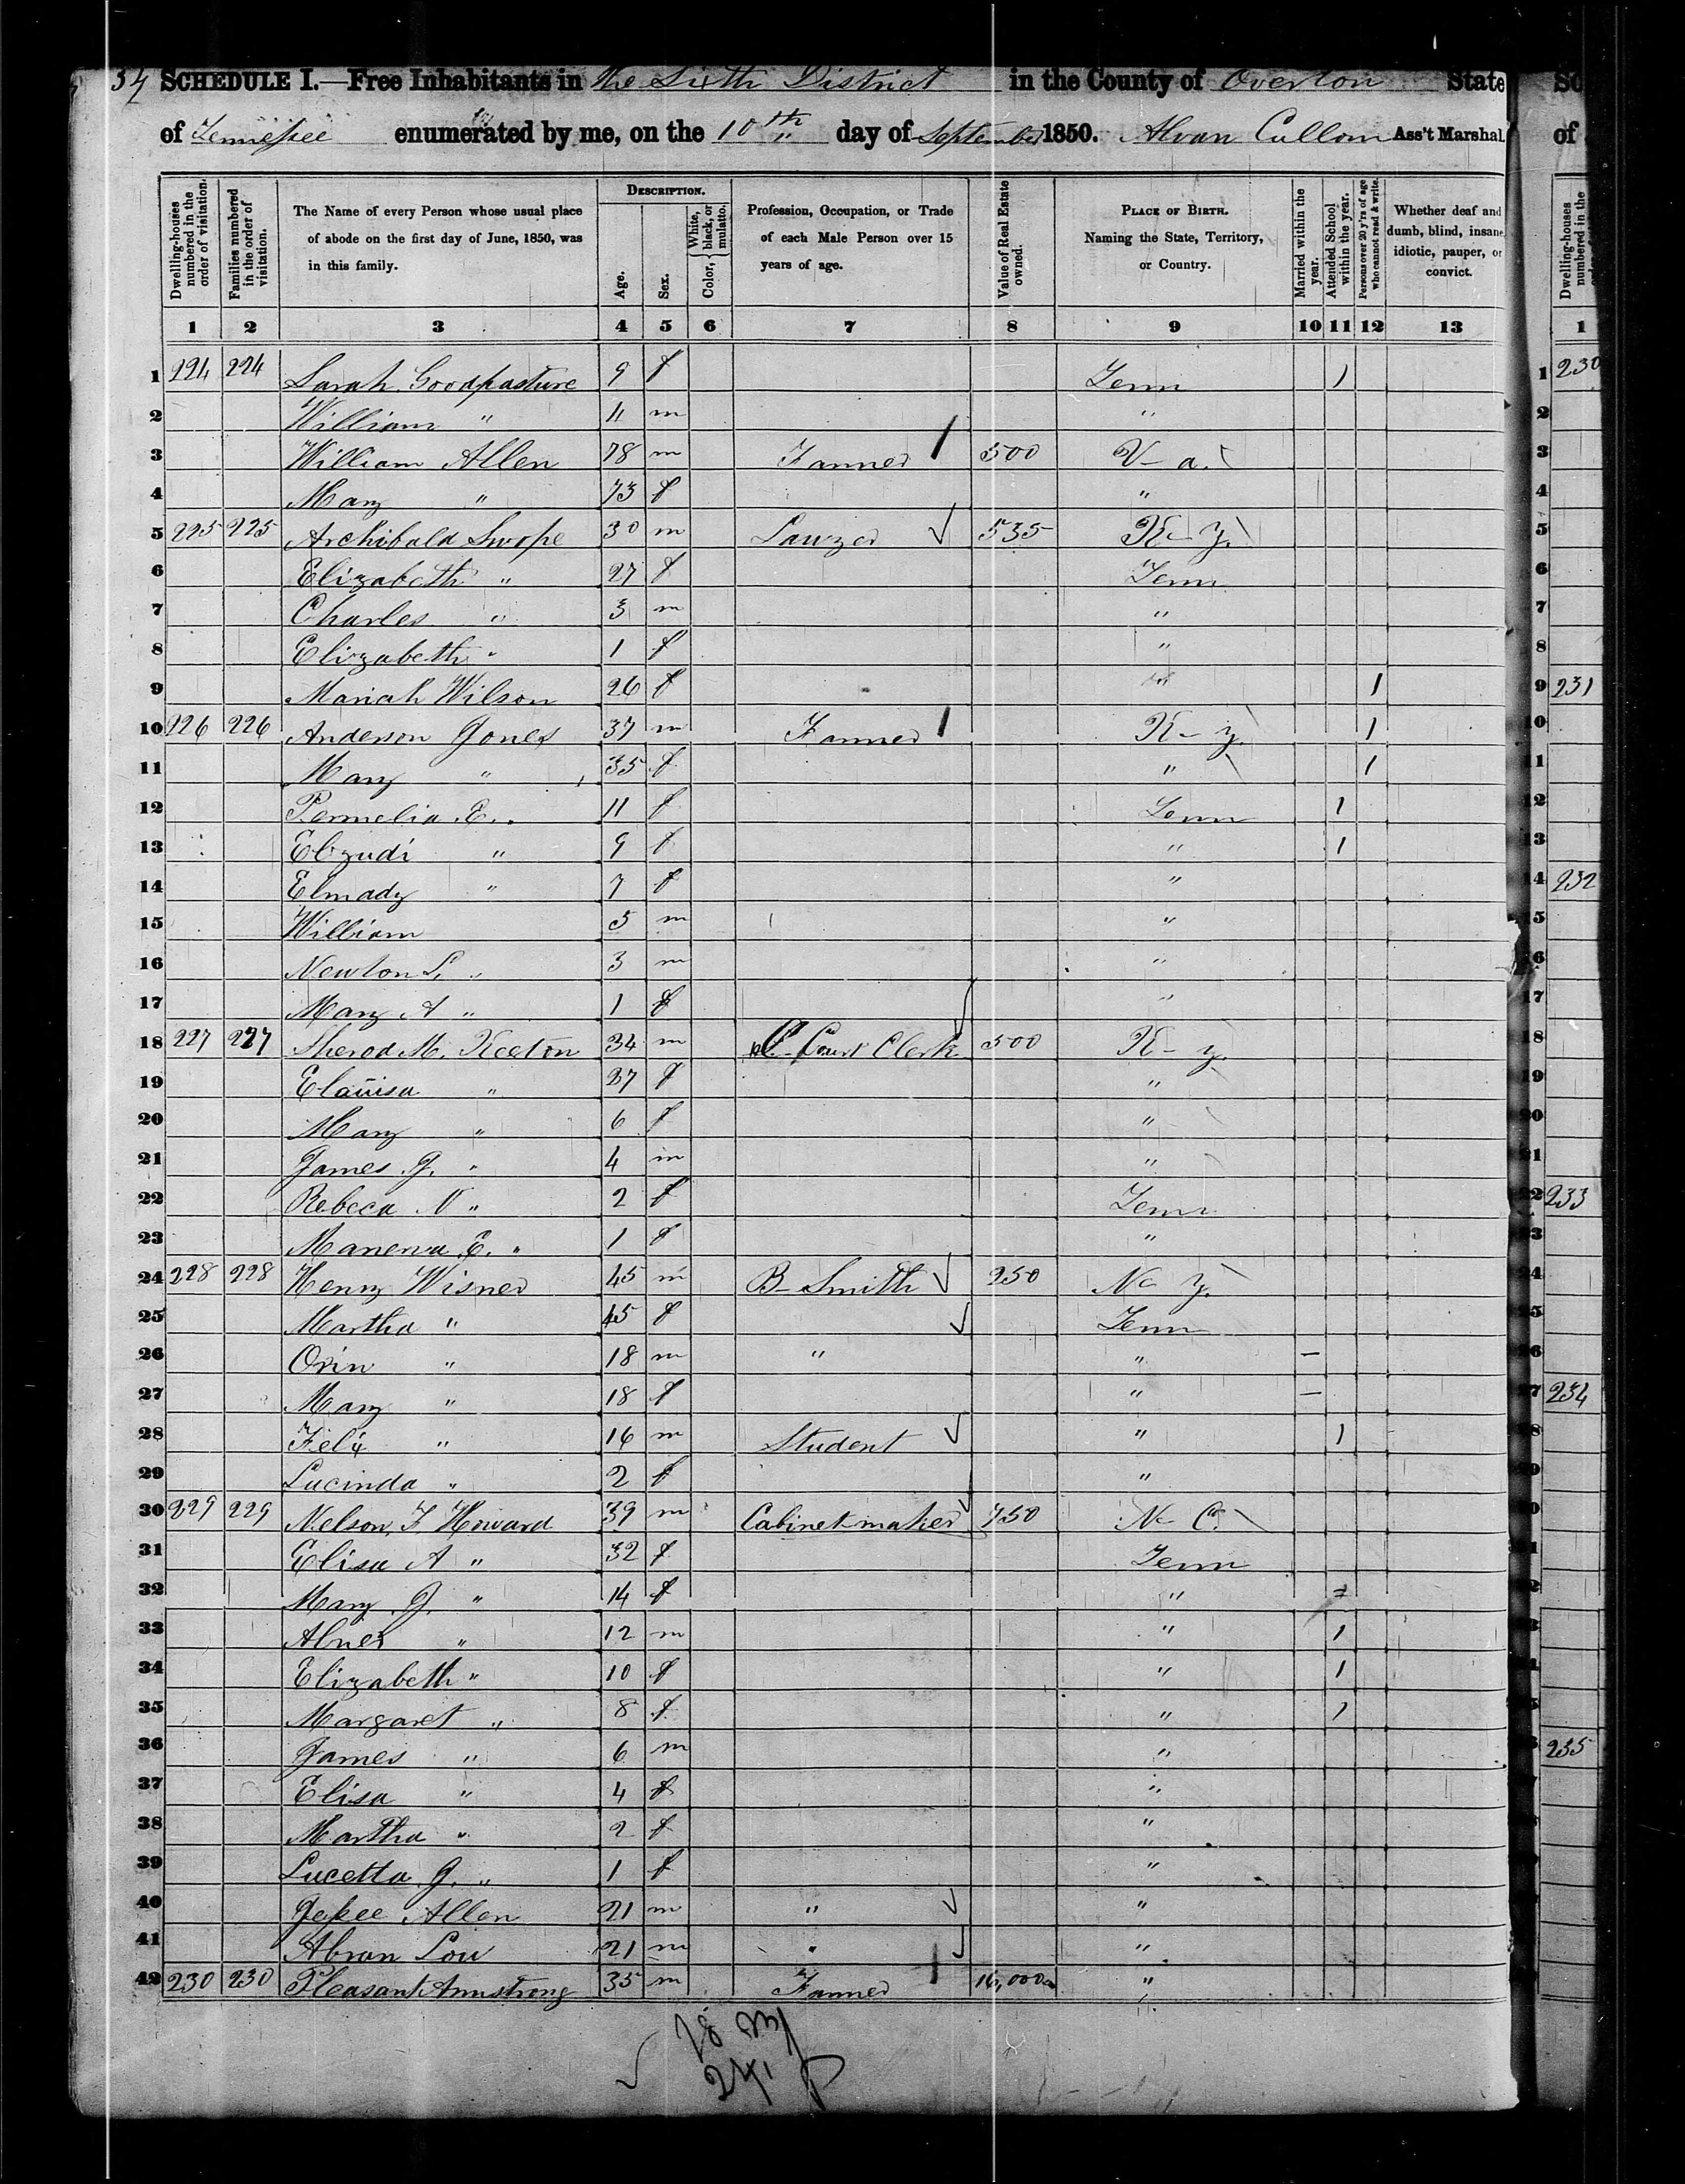 34 SCHEDULE I.—Free Inhabitants in the Sixth District in the County of Overton State
of Tennessee enumerated by me, on the 10th day of September 1850. Alvan Cullom Ass't Marshal.
Dwelling-houses numbered in the order of visitation. Families numbered in the order of visitation. The Name of every Person whose usual place of abode on the first day of June, 1850, was in this family. DESCRIPTION. Age. Sex. Color, { White, black, or mulatto. Profession, Occupation, or Trade of each Male Person over 15 years of age. Value of Real Estate owned. PLACE OF BIRTH. Naming the State, Territory, or Country. Married within the year. Attended School within the year. Persons over 20 y'rs of age who cannot read & write. Whether deaf and dumb, blind, insane, idiotic, pauper, or convict.
1 2 3 4 5 6 7 8 9 10 11 12 13
1 224 224 Sarah Goodpasture 9 f Tenn 1
2 William " 11 m "
3 William Allen 78 m Farmer 500 V-a.
4 Mary " 73 f "
5 225 225 Archibald Swope 30 m Lawyer 535 K-y.
6 Elizabeth " 27 f Tenn
7 Charles " 3 m "
8 Elizabeth " 1 f "
9 Mariah Wilson 26 f " 1
10 226 226 Anderson Jones 37 m Farmer K-y. 1
11 Mary " 35 f " 1
12 Permelia E. " 11 f Tenn 1
13 " 9 f " 1
14 Elmady " 7 f "
15 William 5 m "
16 Newton L. " 3 m "
17 Mary A " 1 f "
18 227 227 Sherod M. Keeton 34 m C. Court Clerk 500 K-y.
19 " 37 f "
20 Mary " 6 f "
21 James J. " 4 m "
22 Rebeca N " 2 f Tenn
23 Manerva E. " 1 f "
24 228 228 Henry Wisner 45 m B-Smith 250 N Y.
25 Martha " 45 f Tenn
26 Orin " 18 m " " –
27 Mary " 18 f " –
28 " 16 m Student " 1
29 Lucinda " 2 f "
30 229 229 Nelson F Howard 39 m Cabinet-maker 750 N-C.
31 Elisa A " 32 f Tenn
32 Mary J. " 14 f "
33 Abner " 12 m " 1
34 Elizabeth " 10 f " 1
35 Margaret " 8 f " 1
36 James " 6 m "
37 Elisa " 4 f "
38 Martha " 2 f "
39 Lucetta J. " 1 f "
40 Jessee Allen 21 m " "
41 Abram 21 m " "
42 230 230 Pleasant Armstrong 35 m Farmer "